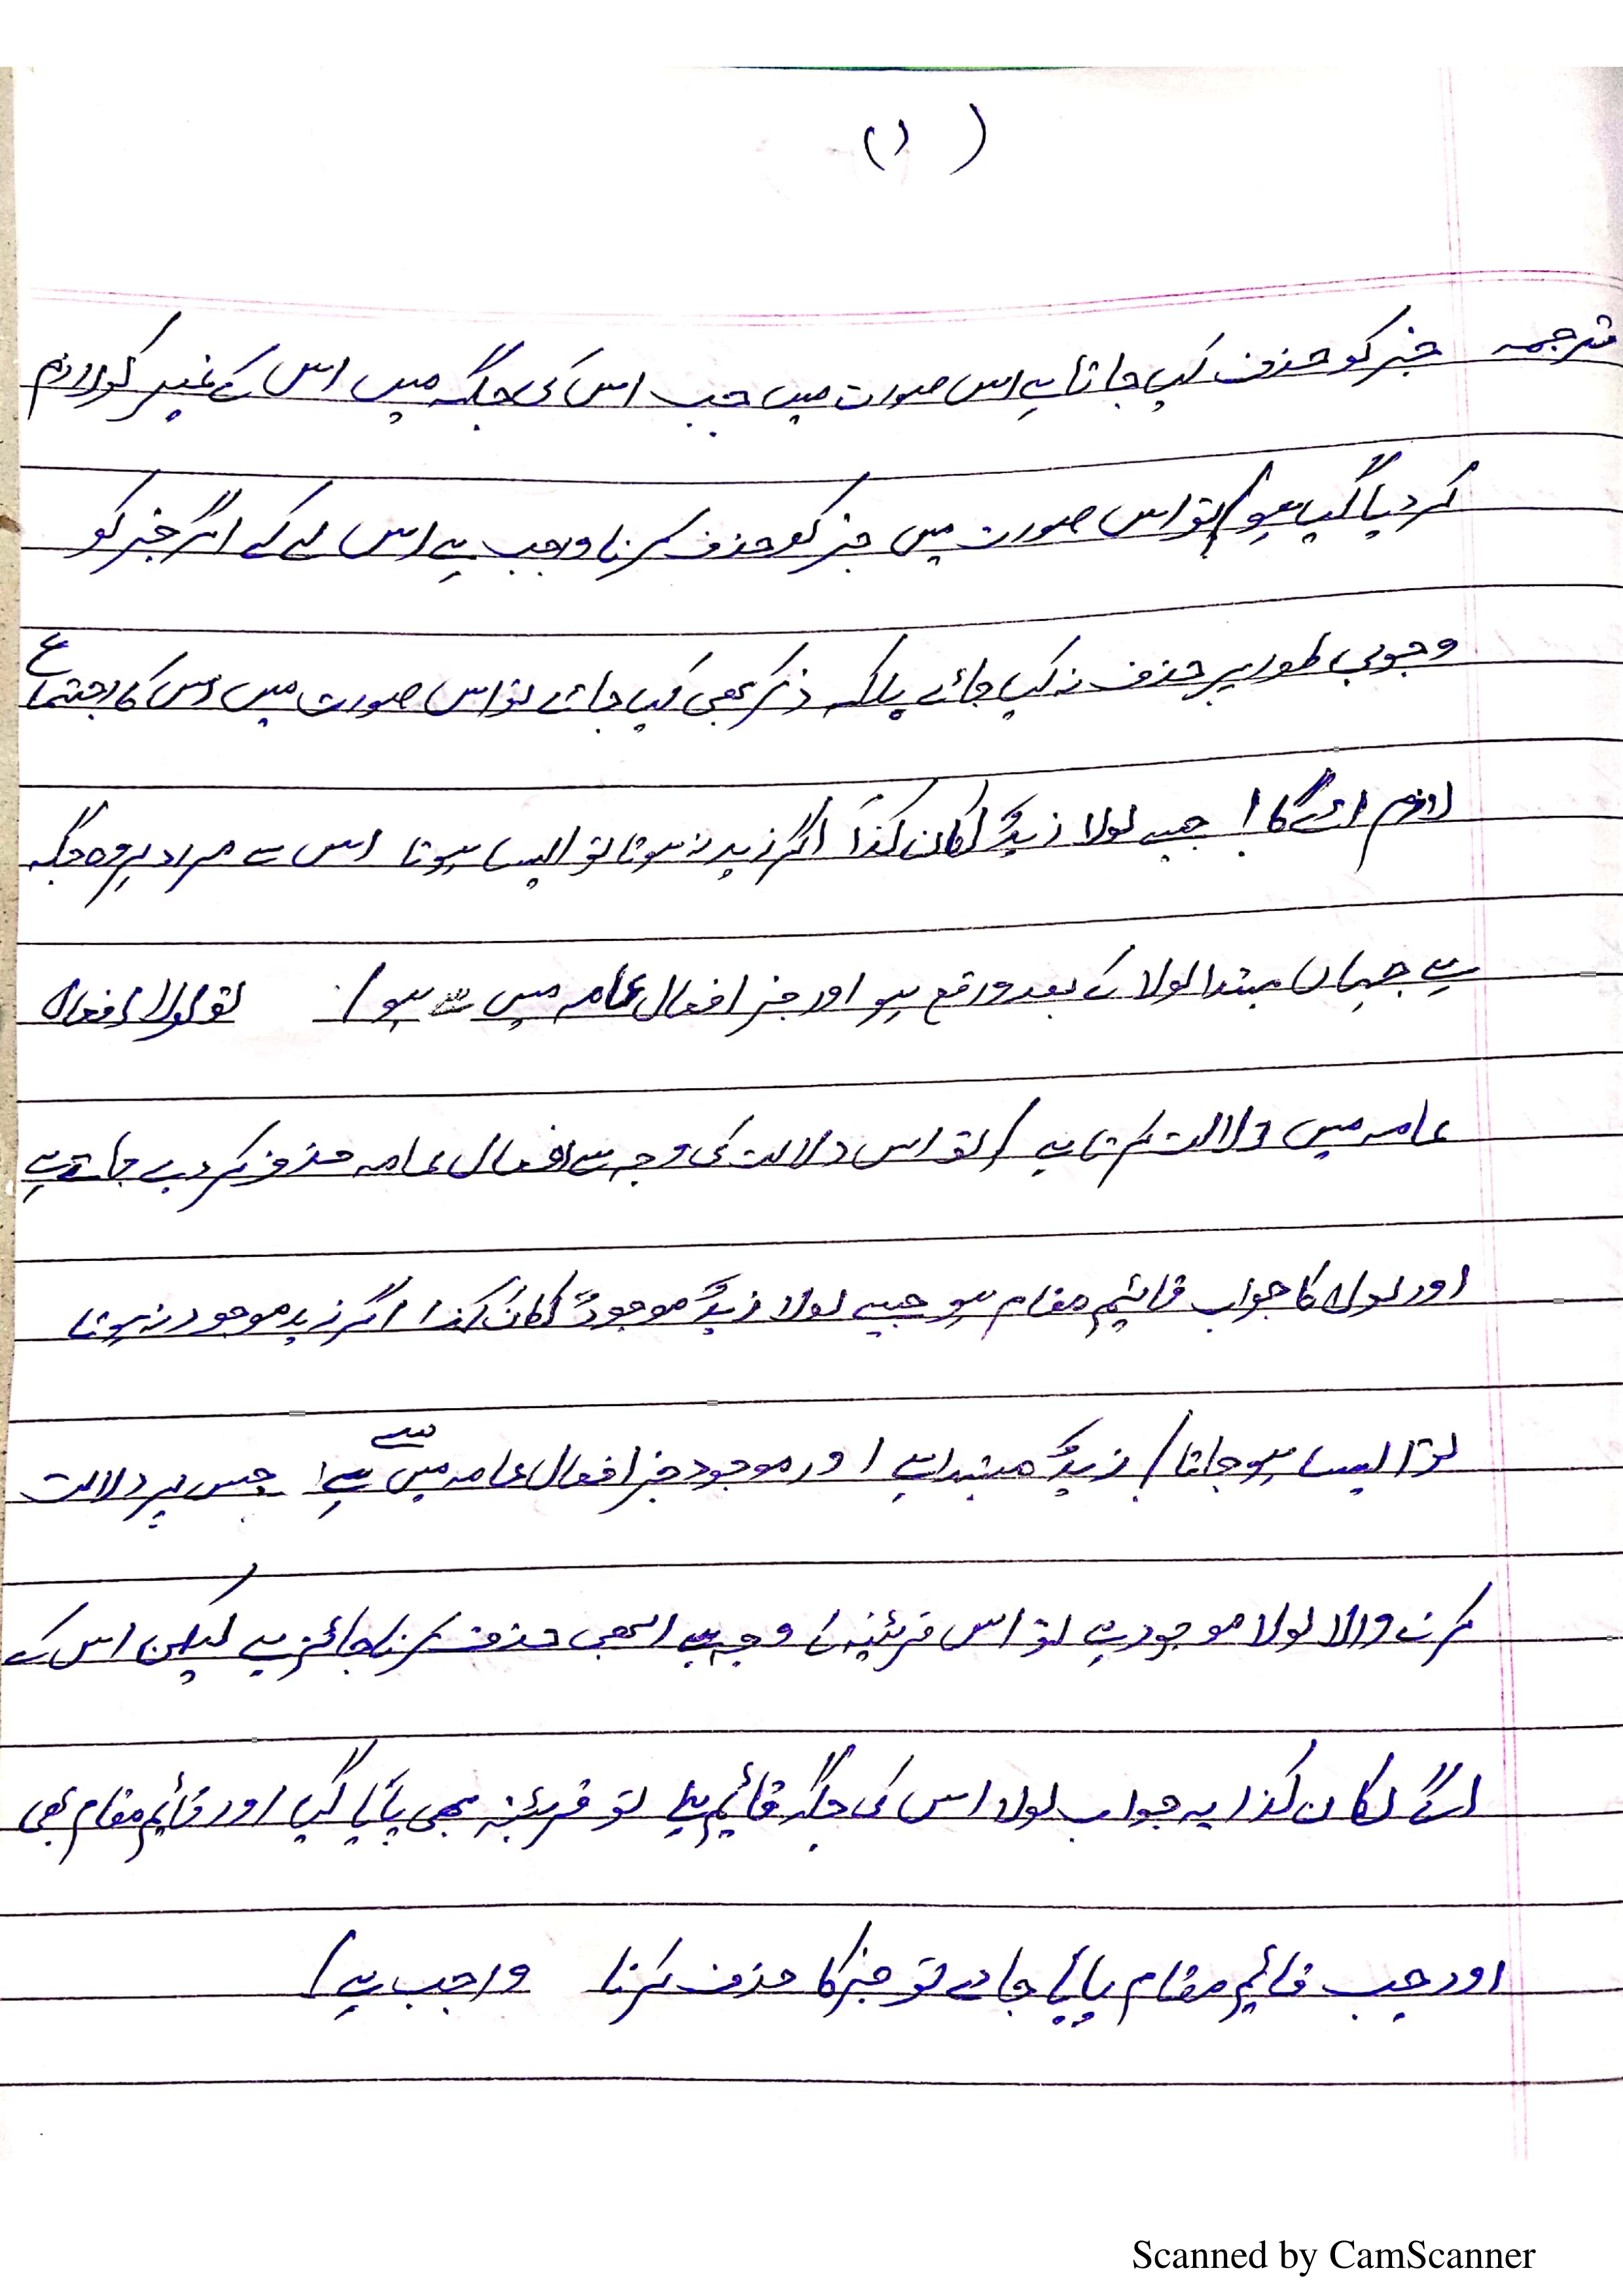 (۱)
ترجمہ خبر کو حذف کیا جاتا ہے اس صورت میں جب اس کی جگہ میں اس کے غیر کو لازم
کر دیا گیا ہو / تو اس صورت میں خبر کو حذف کرنا واجب ہے اس لیے کے اگر خبر کو
وجوبی طور پر حذف نہ کیا جائے بلکہ ذکر بھی کیا جائے تو اس صورت میں اس کا اجتماع
لازم ائے گا! جیسے لولا زیدٌ لکان کذا اگر زید نہ ہوتا تو ایسا ہوتا اس سے مراد ہر وہ جگہ
ہے جہاں مبتدا لولا کے بعد واقع ہو اور خبر افعال عامہ میں سے ہو / تو لولا افعال
عامہ میں دلالت کرتا ہے / تو اس دلالت کی وجہ سے افعال عامہ حذف کر دیے جاتے ہے
اور لولا کا جواب قائیم مقام ہو جیسے لولا زیدٌ موجودٌ لکان کذا اگر زید موجود نہ ہوتا
تو ایسا ہو جاتا / زیدٌ مبتدا ہے اور موجود خبر افعال عامہ میں سے ہے! جس پر دلالت
کرنے والا لولا موجود ہے تو اس قرئینہ کی وجہ سے اسے بھی حذف کرنا جائز ہے لیکن اس کے
اگے لکان کذا یہ جواب لولا اس کی جگہ قائیم ہے تو قرئینہ بھی پایا گیا اور قائیم مقام بھی
اور جب قائیم مقام پایا جائے تو خبر کا حذف کرنا واجب ہے /
Scanned by CamScanner